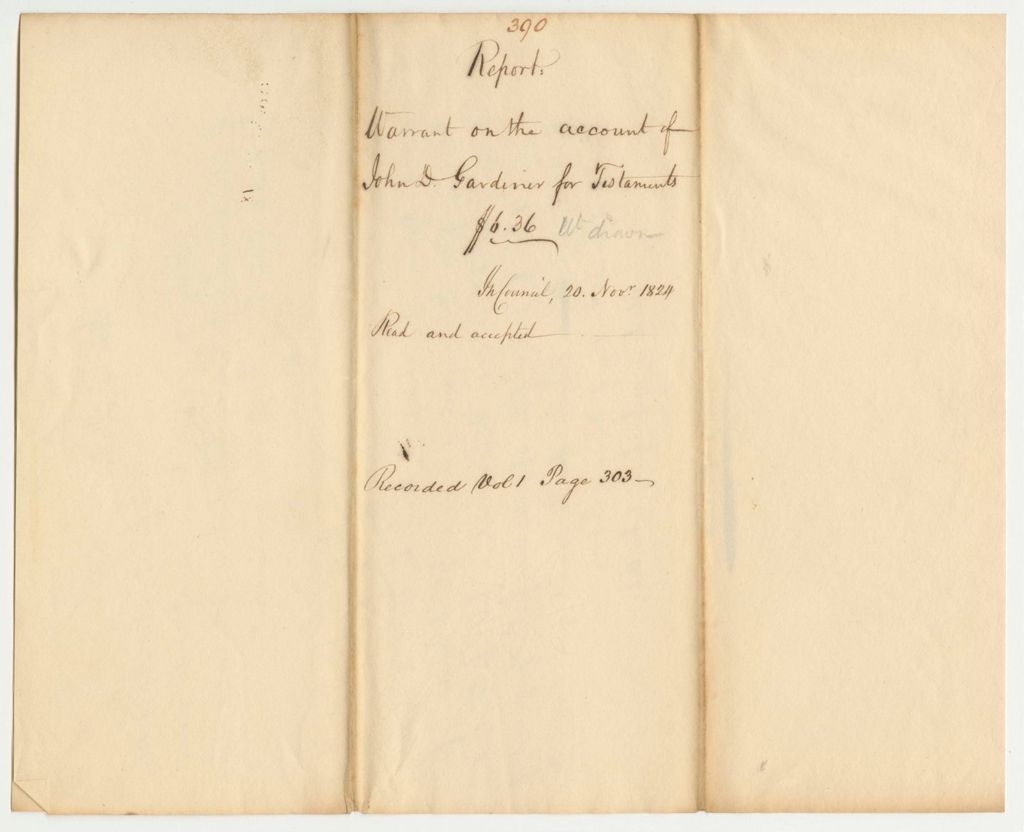 390
Report:
Warrant on the account of
John D. Gardiner for Testaments
$6.36 Wt drawn
In Council, 20. Novr 1824
Read and accepted
Recorded Vol 1 Page 303